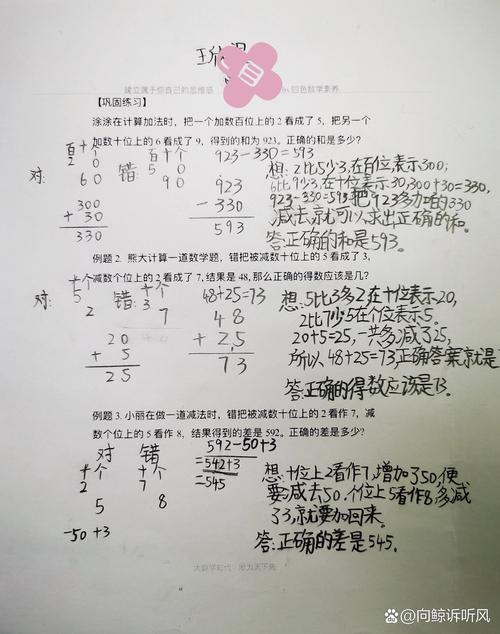 王
建立属于你自己的思维感 四色数学素养
【巩固练习】
涂涂在计算加法时，把一个加数百位上的2看成了5，把另一个
加数十位上的6看成了9，得到的和为923。正确的和是多少？
百十个 百十个 923-330=593
对： 2 0 错： 5 0
60 90
想：2比5少3，在百位表示300；
6比9少3，在十位表示30，300+30=330，
923-330=593把923多加的330
减去，就可以求出正确的和。
答：正确的和是593。
300
+ 30
330
923
- 330
593
例题2．熊大计算一道数学题，错把被减数十位上的5看成了3，
减数个位上的2看成了7，结果是48，那么正确的得数应该是几？
对： 十个 错： 十个 48+25=73
5 3
2 7
20
+ 5
25
48
+ 25
73
想：5比3多2，在十位表示20，
2比7少5在个位表示5。
20+5=25，一共多减了25，
所以48+25=73，正确答案就是
答：正确的得数应该是73。
例题3．小丽在做一道减法时，错把被减数十位上的2看作7，减
数个位上的5看作8，结果得到的差是592。正确的差是多少？
对 错 592-50+3
十个 十个 =542+3
2 7 =545
5 8
-50+3
想：十位上2看作7，增加了50，便
要减去50，个位上5看作8，多减
了3，就要加回来。
答：正确的差是545。
大数学时代，思为天下先
百家号/向鲸诉听风